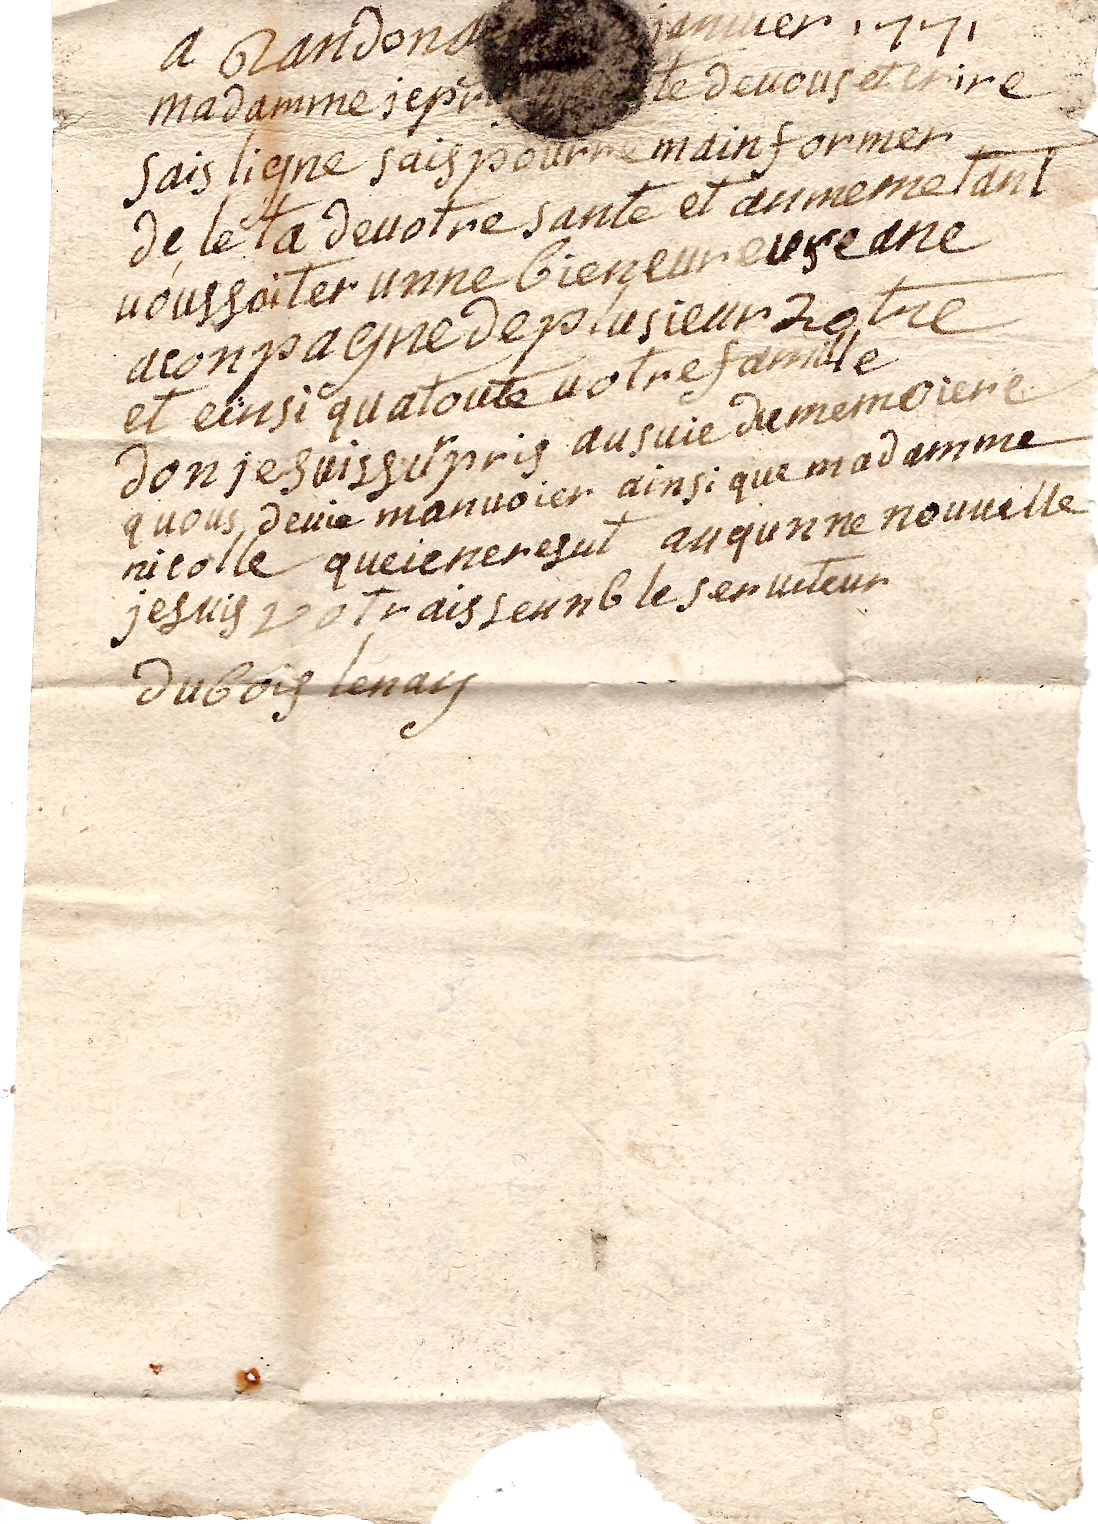 a Randon janvier 1771
madamme je te de vous et crire
sais ligne sais pourre mainformer
de le ta de votre sante et aumeme tant
vous soiter unne bieneureuse ane
aconpagne de plusieur zotre
et einsi qua toute votre famille
don je suis surpris au suie du memoiere
quous devie manvoier ainsi que madamme
nicolle que iene resut auqunne nouvelle
je suis votr ais seunble serviteur
dubois lenay